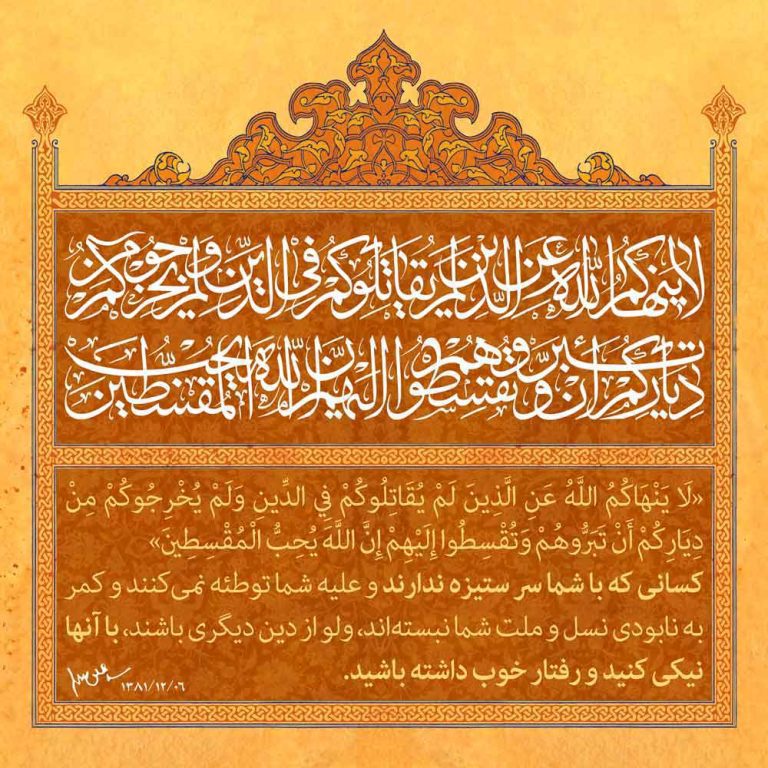 لا ینهاکم الله عن الذین لم یقاتلوکم فی الدین ولم یخرجوکم من
دیارکم أن تبروهم وتقسطوا إلیهم إن الله یحب المقسطین
«لَا يَنْهَاكُمُ اللَّهُ عَنِ الَّذِينَ لَمْ يُقَاتِلُوكُمْ فِي الدِّينِ وَلَمْ يُخْرِجُوكُمْ مِنْ
دِيَارِكُمْ أَنْ تَبَرُّوهُمْ وَتُقْسِطُوا إِلَيْهِمْ إِنَّ اللَّهَ يُحِبُّ الْمُقْسِطِينَ»
کسانی که با شما سر ستیزه ندارند و علیه شما توطئه نمی‌کنند و کمر
به نابودی نسل و ملت شما نبسته‌اند، ولو از دین دیگری باشند، با آنها
نیکی کنید و رفتار خوب داشته باشید.
۱۳۸۱/۱۲/۰۶